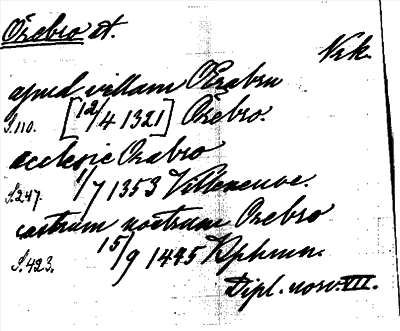 Örebro st.
Nrk.
apud villam Örabru
S.110. [12/4 1321] Örebro.
ecclesie Orabro
S.247. 1/7 1353 Villeneuve.
castrum nostrum Orebro
S.423. 15/9 1445 Kphmn.
Dipl. norv. VII.